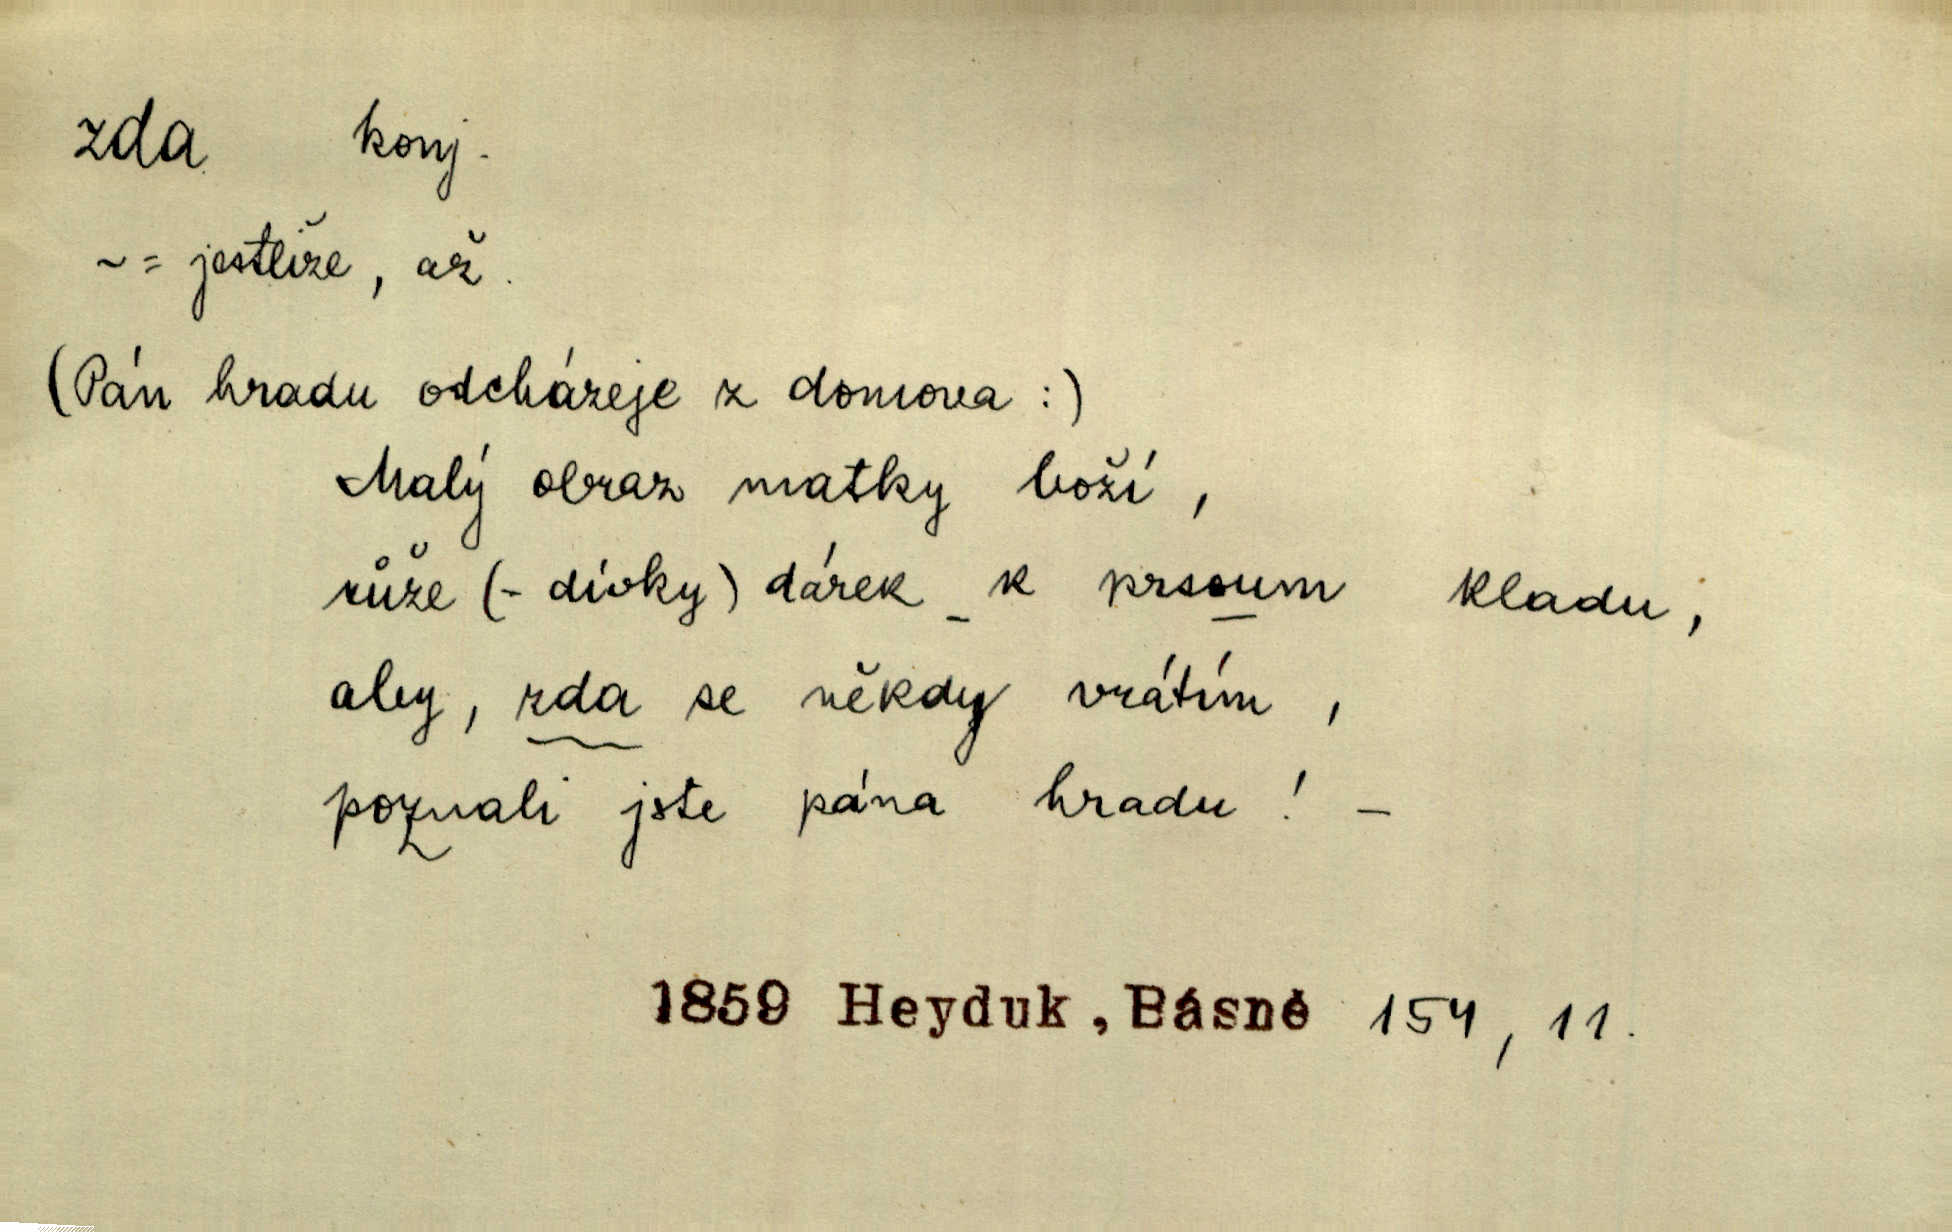 zda konj.
~ = jestliže, až.
(Pán hradu odcházeje z domova :)
Malý obraz matky boží,
růže (- dívky) dárek _ k prsoum kladu,
aby, zda se někdy vrátím,
poznali jste pána hradu! –
1859 Heyduk, Básně 154, 11.